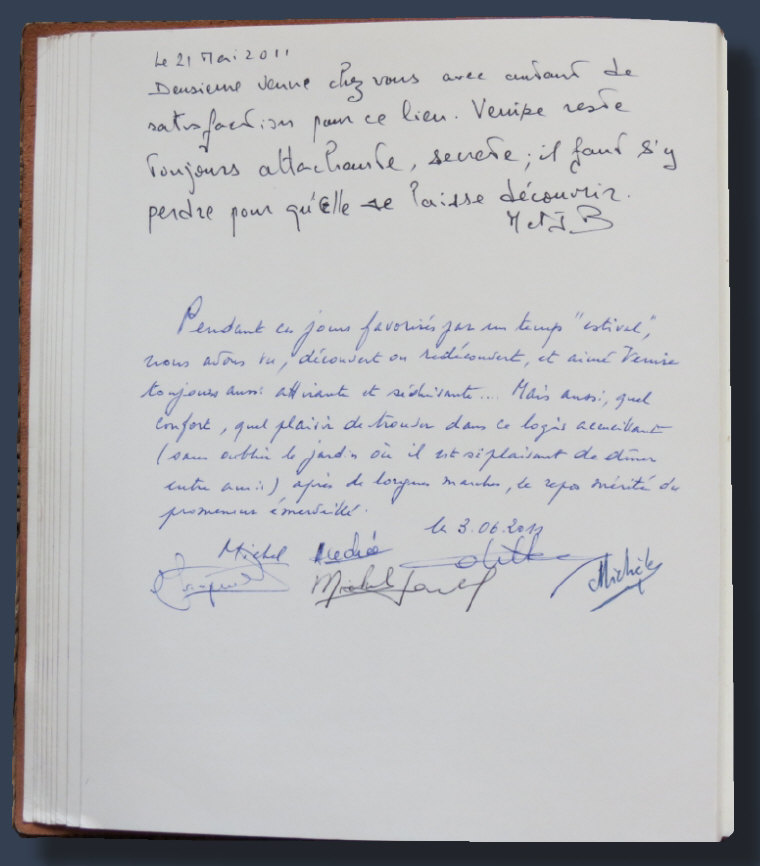 Le 21 Mai 2011
Deuxieme venue chez vous avec autant de
satisfaction pour ce lieu. Venise reste
toujours attachante, secrete; il faut s'y
perdre pour qu'elle se laisse découvrir.
M et J B
Pendant ces jours favorisés par un temps "estival",
nous avons vu, découvert ou redécouvert, et aimé Venise
toujours aussi attirante et séduisante.... Mais aussi, quel
confort, quel plaisir de trouver dans ce logis accueillant
(sans oublier le jardin où il est si plaisant de dîner
entre amis) après de longues marches, le repos mérité du
promeneur émerveillé.
le 3.06.2011
Michel Andrée
Michel Michèle